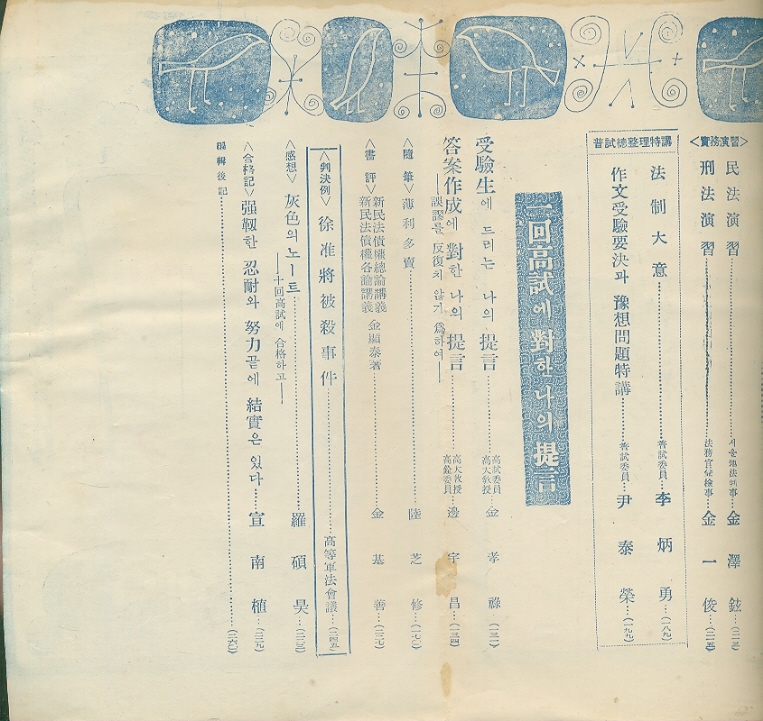 <實務演習>
民法演習……서울地法판事 金澤鉉…(二一三)
刑法演習……法務官兼檢事 金一俊…(二一五)
普試總整理特講
法制大意……普試委員 李炳勇…(一八九)
作文受驗要決과 豫想問題特講……普試委員 尹泰榮…(一九九)
一回高試에 對한 나의 提言
受驗生에 드리는 나의 提言……高試委員 高大敎授 金孝祿…(一三一)
答案作成에 對한 나의 提言……高大敎授 高銓委員 邊宇昌…(一三四)
──誤謬를 反復치 않기 爲하여──
<隨筆> 薄利多賣……陸芝修…(一七〇)
<書評> 新民法債權總論講義 新民法債權各論講義 金顯泰著……金基善…(一三七)
<判決例> 徐准將被殺事件……高等軍法會議…(二四五)
<感想> 灰色의 노ー트……羅碩昊…(二二三)
──十回高試에 合格하고──
<合格記> 强靱한 忍耐와 努力끝에 結實은 있다…宣南植…(二二九)
編輯後記……(二六〇)